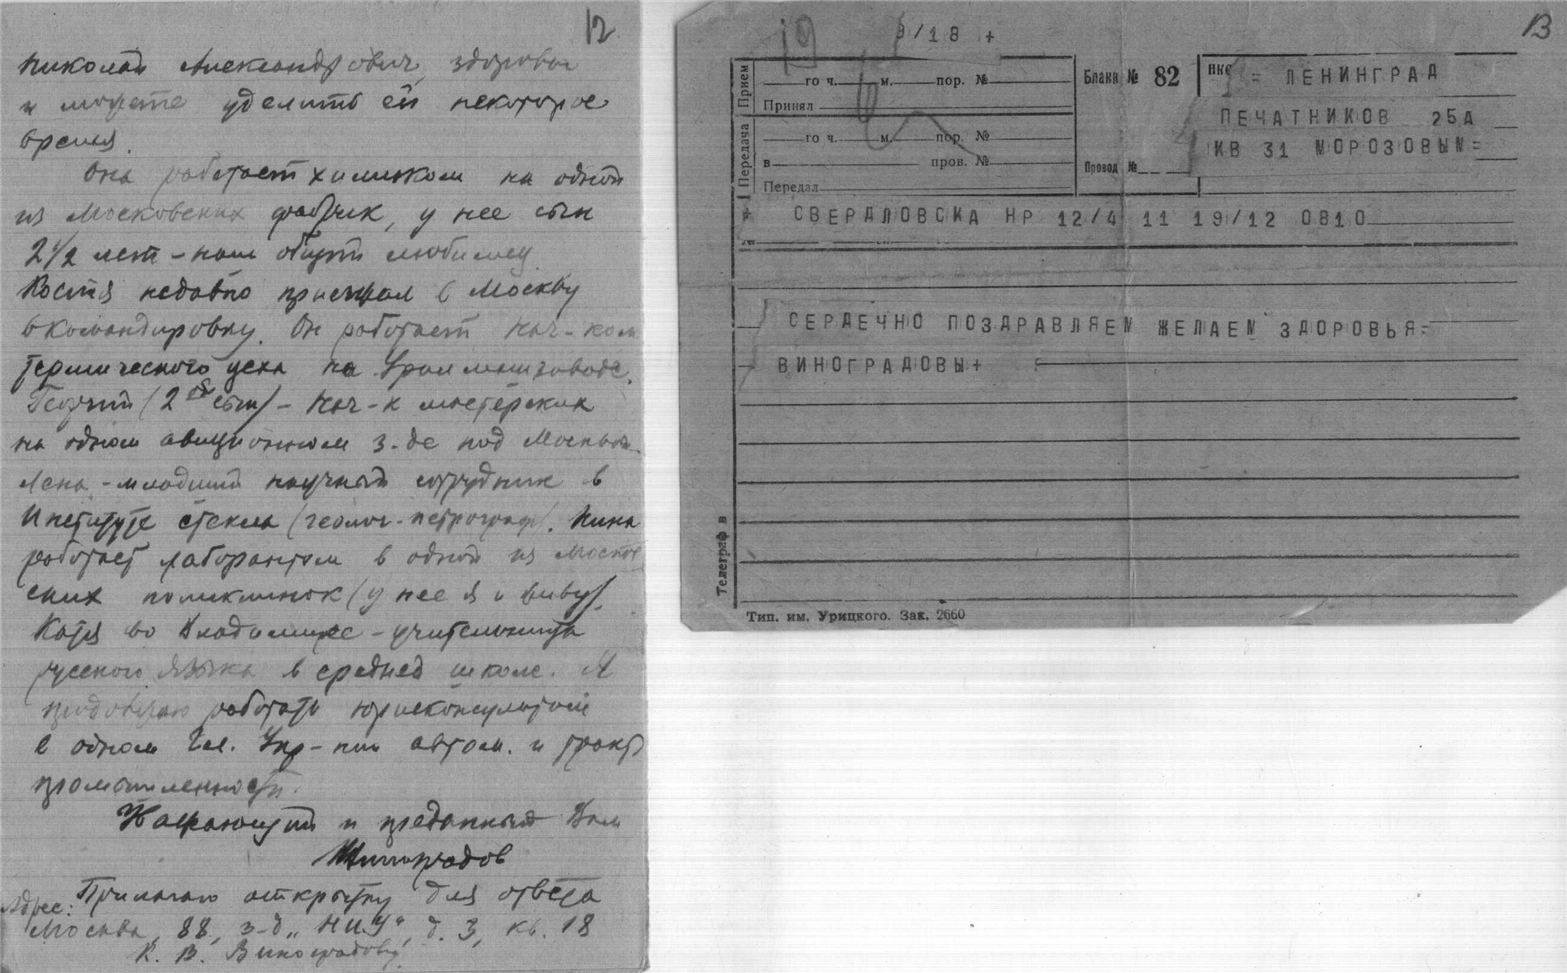 12
Николай Александрович, здоровы
и можете уделить ей некоторое
время.
Она работает химиком на одной
из Московских фабрик, у нее сын
2 1/2 лет – наш общий любимец
Костя недавно приезжал в Москву
в командировку. Он работает нач-ком
термического цеха на Уралмашзаводе.
Георгий (2ой сын) – нач-к мастерских
на одном авиционном з-де под Москвой.
Лена – младший научный сотрудник в
Институте стекла (геолог-петрограф). Нина
работает лаборантом в одной из Москов
ских поликлиник (у нее я и живу).
Катя во Владимире – учительница
русского языка в средней школе. Я
продолжаю работать юрисконсультом
в одном Гл. Упр-нии автом. и тракт
промышленности.
Уважающий и преданный Вам
Виноградов
Прилагаю открытку для ответа
Адрес:
Москва, 88, з-д „НИУ", д. 3, кв. 18
К. В. Виноградову
13
19
9/18 +
Прием
го ч. м. пор. №
Принял
Передача
го ч. м. пор. №
в пров. №
Передал
Бланк № 82
Провод №
НКС
= ЛЕНИНГРАД
ПЕЧАТНИКОВ 25А
КВ 31 МОРОЗОВЫМ=
+ СВЕРДЛОВСКА НР 12/4 11 19/12 0810
СЕРДЕЧНО ПОЗДРАВЛЯЕМ ЖЕЛАЕМ ЗДОРОВЬЯ=
ВИНОГРАДОВЫ+
Телеграф в
Тип. им. Урицкого. Зак. 2660